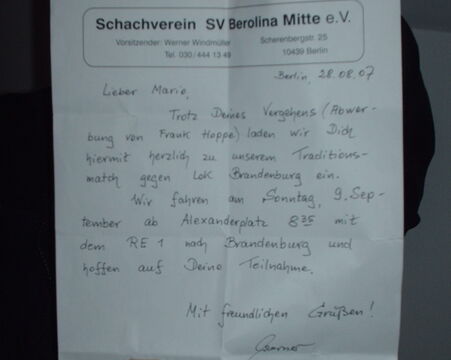 Schachverein SV Berolina Mitte e.V.
Vorsitzender: Werner Windmüller Scherenbergstr. 25
Tel. 030/444 13 49 10439 Berlin
Berlin, 28.08.07
Lieber Mario,
Trotz Deines Vergehens (Abwer-
bung von Frank Hoppe) laden wir Dich
hiermit herzlich zu unserem Traditions-
match gegen Lok Brandenburg ein.
Wir fahren am Sonntag, 9. Sep-
tember ab Alexanderplatz 8 35 mit
dem RE 1 nach Brandenburg und
hoffen auf Deine Teilnahme.
Mit freundlichen Grüßen!